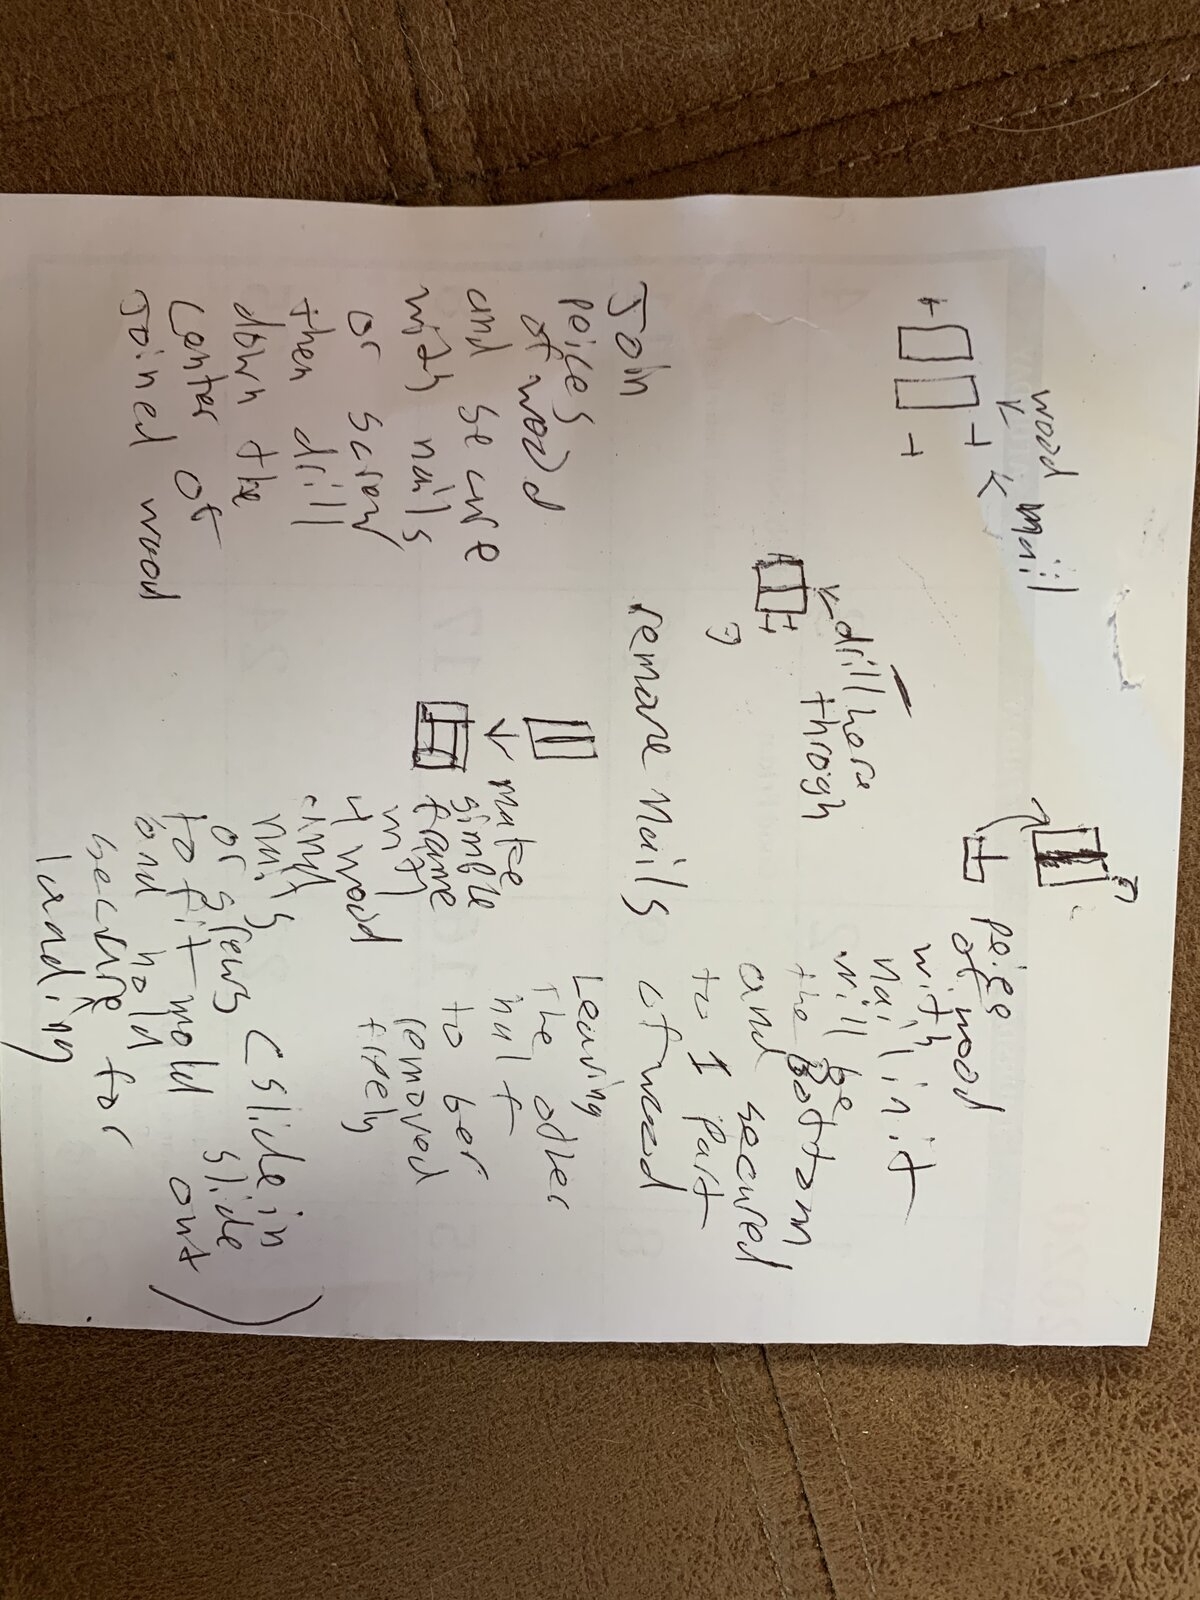 wood nail
drill here
throgh
Join
peices
of wood
and secure
with nails
or screw
then drill
down the
center of
Joined wood
remove nails
make
simple
frame
with
4 wood
and
nails
or srews (slide in
to fit mold slide
and hold out)
secure for
loading
peice
of wood
with
nail in it
will be
the Bottom
and secured
to 1 part
of wood
Leaving
The other
half
to ber
removed
freely
2020